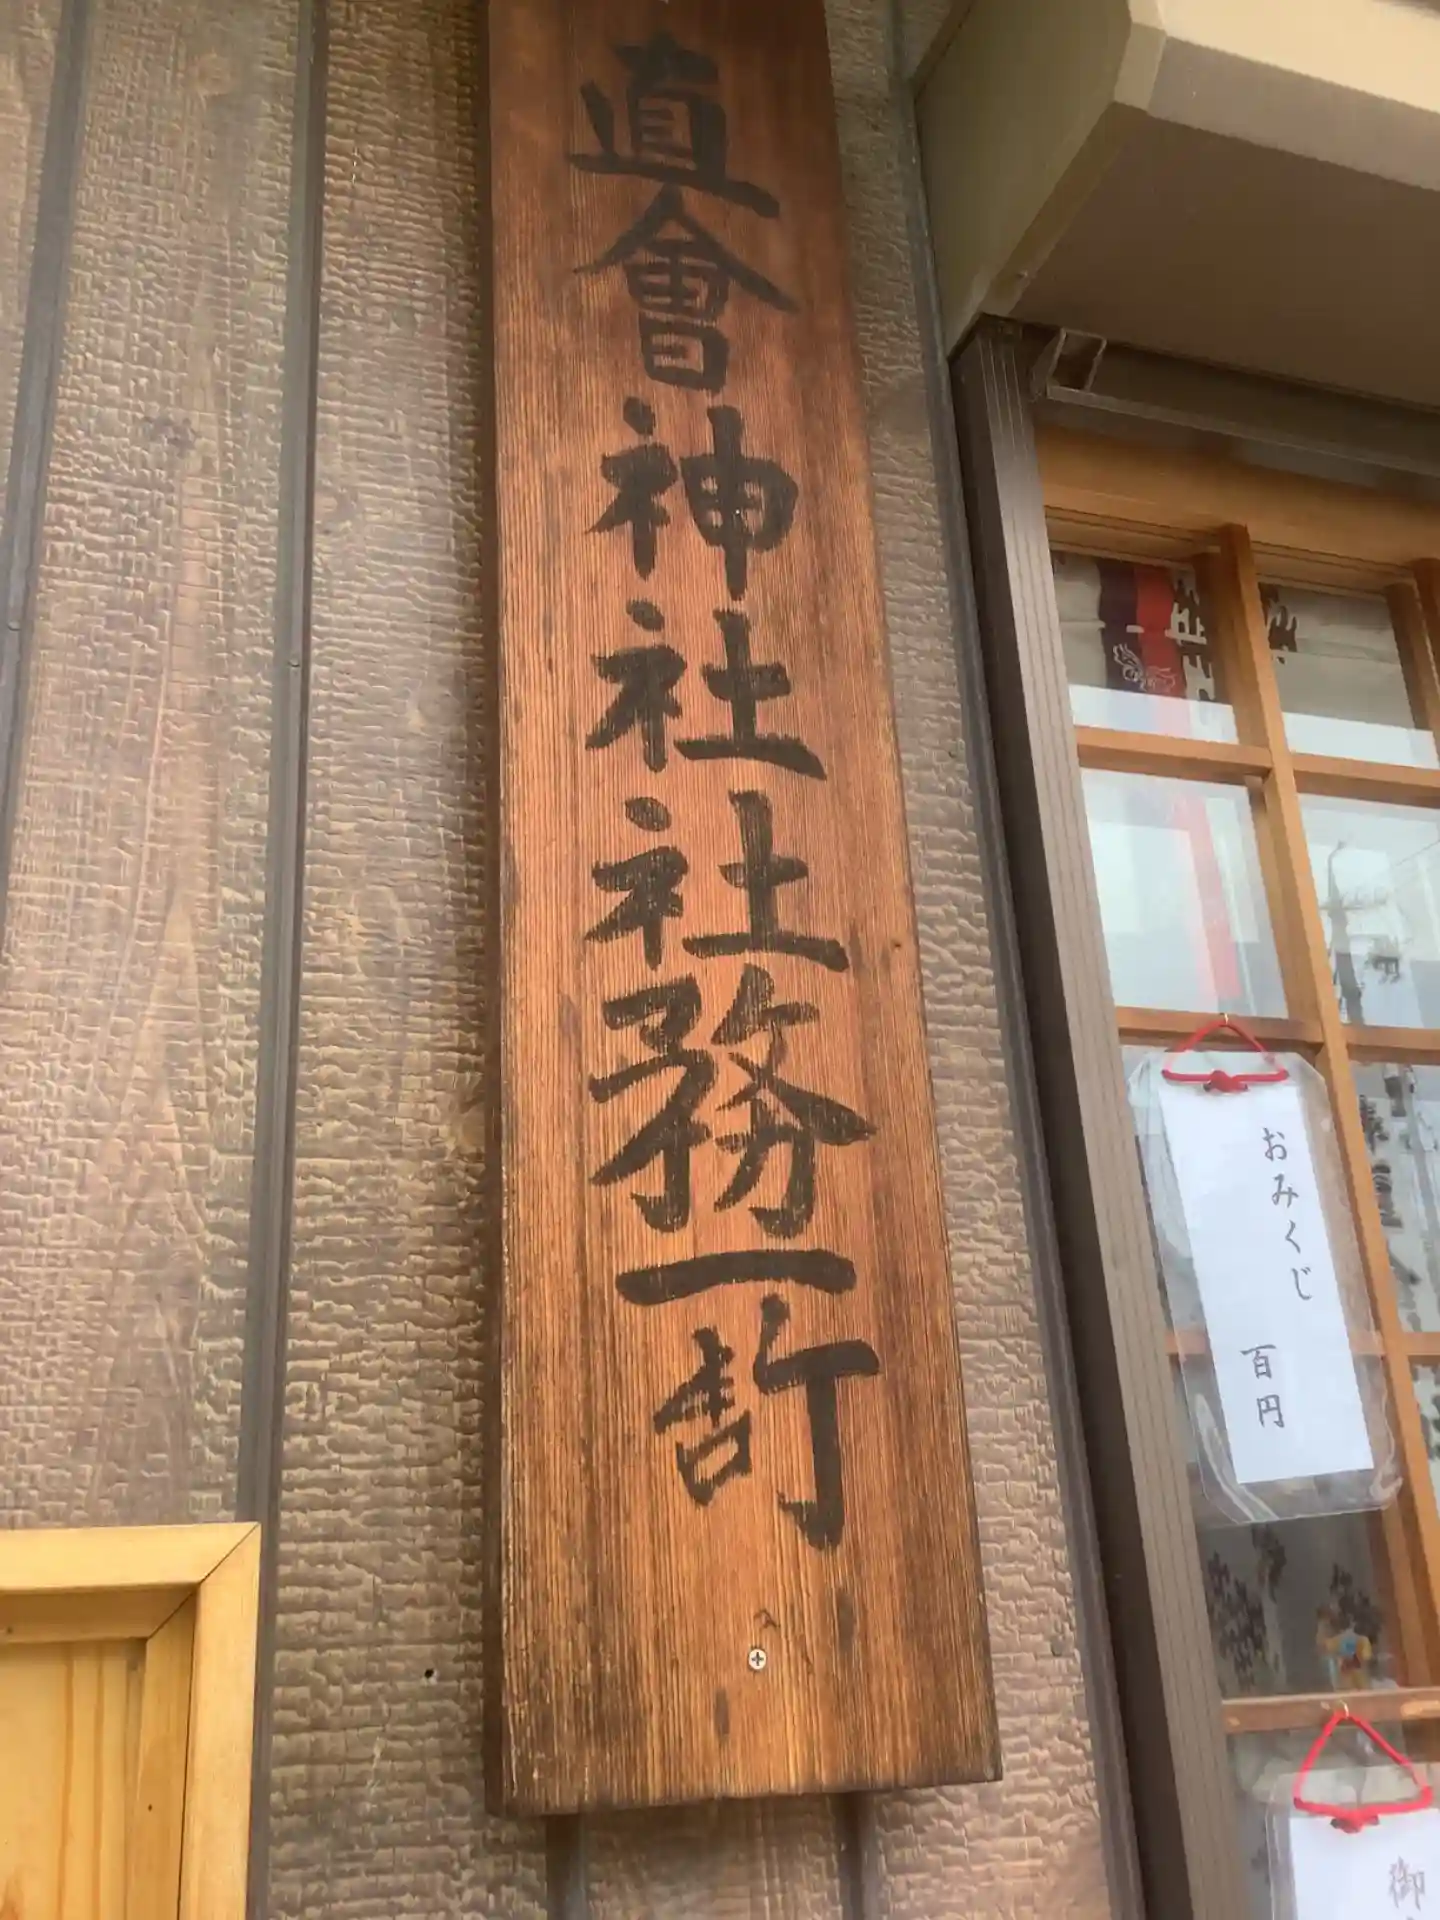 直會神社社務所
おみくじ 百円
御